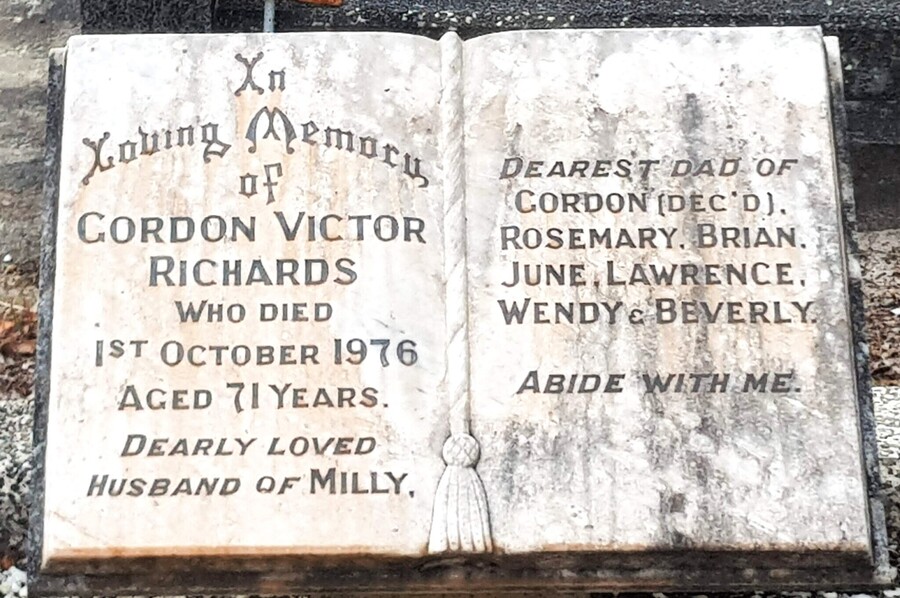 In
Loving Memory
of
GORDON VICTOR
RICHARDS
WHO DIED
1ST OCTOBER 1976
AGED 71 YEARS.
DEARLY LOVED
HUSBAND OF MILLY,
DEAREST DAD OF
GORDON (DEC'D),
ROSEMARY, BRIAN,
JUNE, LAWRENCE,
WENDY & BEVERLY.
ABIDE WITH ME.